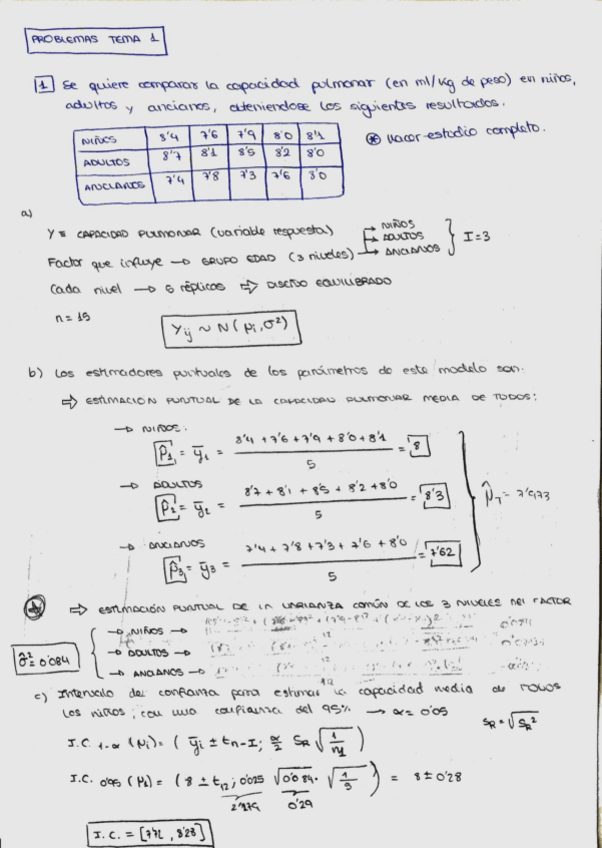 PROBLEMAS TEMA 1
1 Se quiere comparar la capacidad pulmonar (en ml/kg de peso) en niños,
adultos y ancianos, obteniendose los siguientes resultados.
NIÑOS 8'4 7'6 7'9 8'0 8'1
ADULTOS 8'7 8'1 8'5 8'2 8'0
ANCIANOS 7'4 7'8 7'3 7'6 8'0
⊛ Hacer estudio completo.
a)
Y ≡ CAPACIDAD PULMONAR (variable respuesta)
Factor que influye → GRUPO EDAD (3 niveles) → NIÑOS → ADULTOS → ANCIANOS } I=3
Cada nivel → 5 réplicas ⇒ DISEÑO EQUILIBRADO
n = 15
Yij ~ N(μi, σ²)
b) Los estimadores puntuales de los parámetros de este modelo son:
⇒ ESTIMACIÓN PUNTUAL DE LA CAPACIDAD PULMONAR MEDIA DE TODOS:
→ NIÑOS:
μ̂1 = ȳ1 = (8'4 + 7'6 + 7'9 + 8'0 + 8'1) / 5 = 8
→ ADULTOS
μ̂2 = ȳ2 = (8'7 + 8'1 + 8'5 + 8'2 + 8'0) / 5 = 8'3
→ ANCIANOS
μ̂3 = ȳ3 = (7'4 + 7'8 + 7'3 + 7'6 + 8'0) / 5 = 7'62
μ̂T = 7'973
⇒ ESTIMACIÓN PUNTUAL DE LA VARIANZA COMÚN DE LOS 3 NIVELES DEL FACTOR
σ̂² = 0'084
→ NIÑOS →
→ ADULTOS →
→ ANCIANOS →
12
c) Intervalo de confianza para estimar la capacidad media de TODOS
los niños, con una confianza del 95% → α = 0'05
SR = √SR²
I.C. 1-α (μi) = ( ȳi ± tn-I; α/2 SR √(1/n1) )
I.C. 0'95 (μ1) = ( 8 ± t12; 0'025 √0'084 · √(1/5) ) = 8 ± 0'28
2'179 0'29
I.C. = [7'72, 8'28]